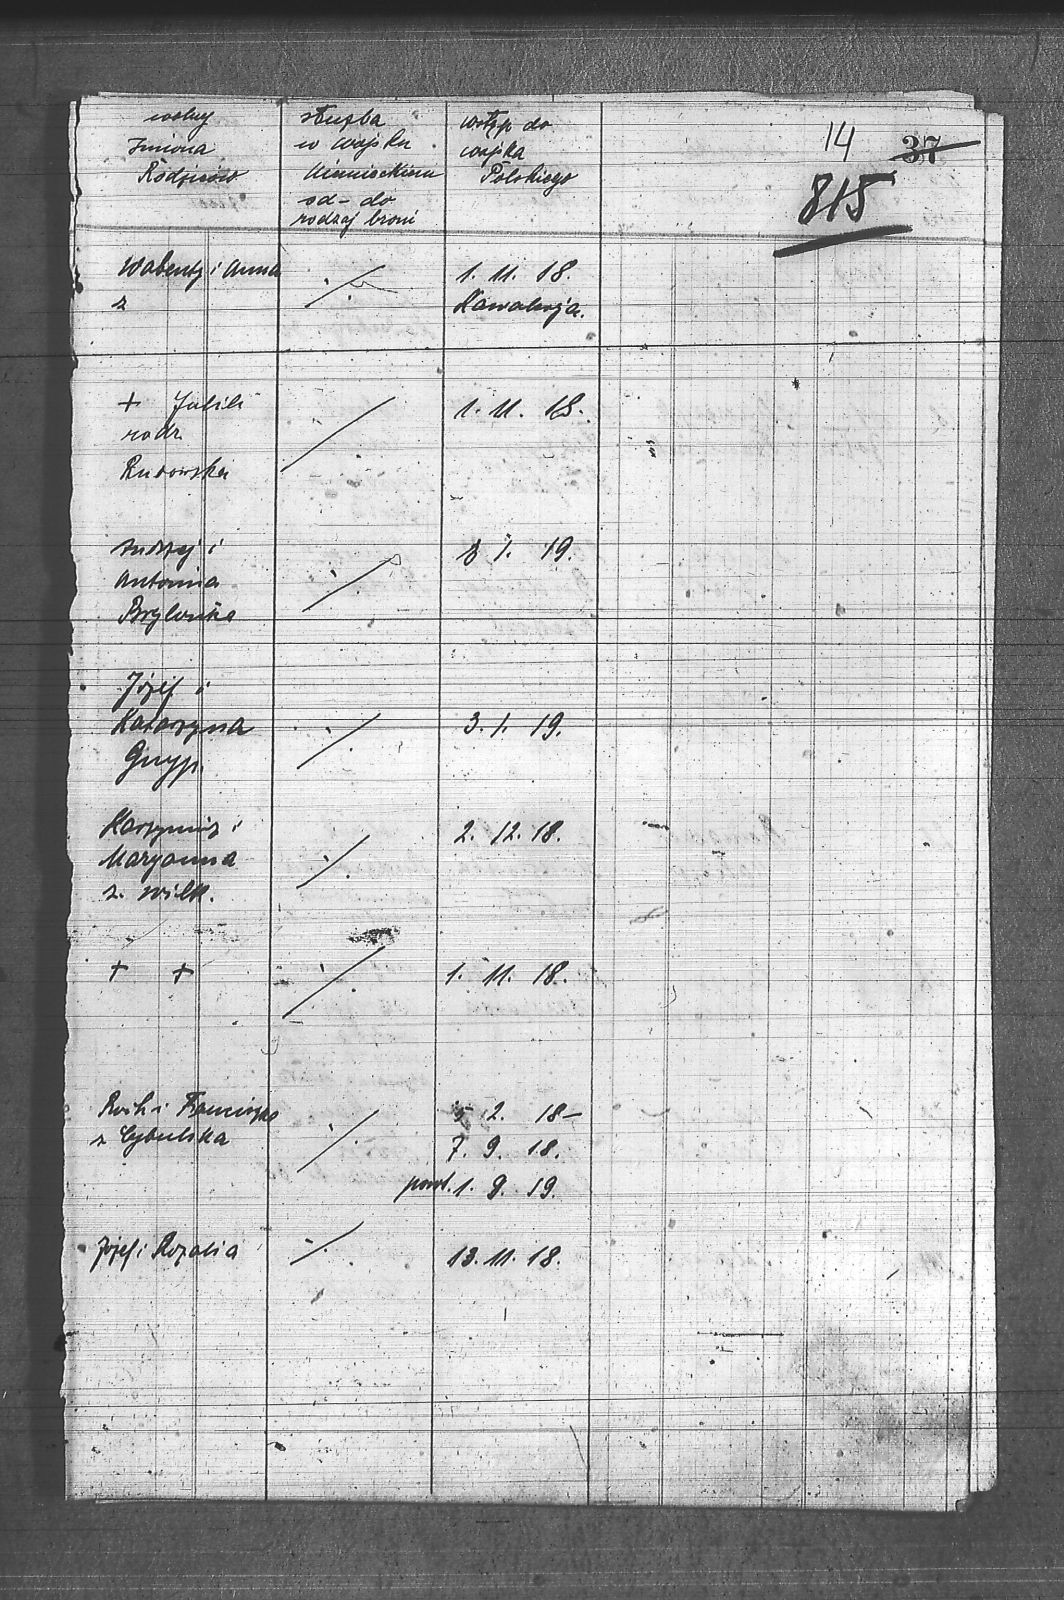 wolny
Imiona
Rodziców
służba
w wojsku
Niemieckim
od - do
rodzaj broni
wstąp do
wojska
Polskiego
14 37
815
Walenty i Anna
z
./.
1. 11. 18.
Kawalerja.
+ Julili
rodz
Rudowska
/
1. 11. 18.
Andrzej i
Antonina
Brylouska
./.
3 1. 19.
Józef i
Katarzyna
Gnyp.
./.
3. 1. 19.
Kazimierz i
Maryanna
z. Wilk.
./.
2. 12. 18.
+ +
./.
1. 11. 18.
Roch i Franciszka
z Cybulska
./.
5 2. 18 -
7. 9. 18.
pow. 1. 9. 19.
Józef i Rozalia
./.
13. 11. 18.